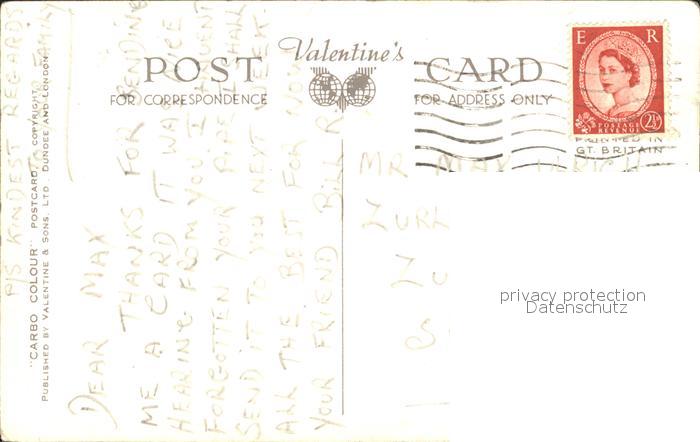 Valentine's
POST CARD
FOR CORRESPONDENCE
FOR ADDRESS ONLY
E R
POSTAGE
REVENUE
2½D
PRINTED IN
GT. BRITAIN
"CARBO COLOUR" POSTCARD. COPYRIGHT.
PUBLISHED BY VALENTINE & SONS, LTD. DUNDEE AND LONDON.
P/S KINDEST REGARDS
FAMILY
DEAR MAX
THANKS FOR SENDING
ME A CARD IT WAS NICE
HEARING FROM YOU I
FORGOTTEN YOUR PIPE I SHALL
SEND IT TO YOU NEXT WEEK
ALL THE BEST FOR NOW
YOUR FRIEND BILL R
MR MAX
ZUR
ZU
S
privacy protection
Datenschutz